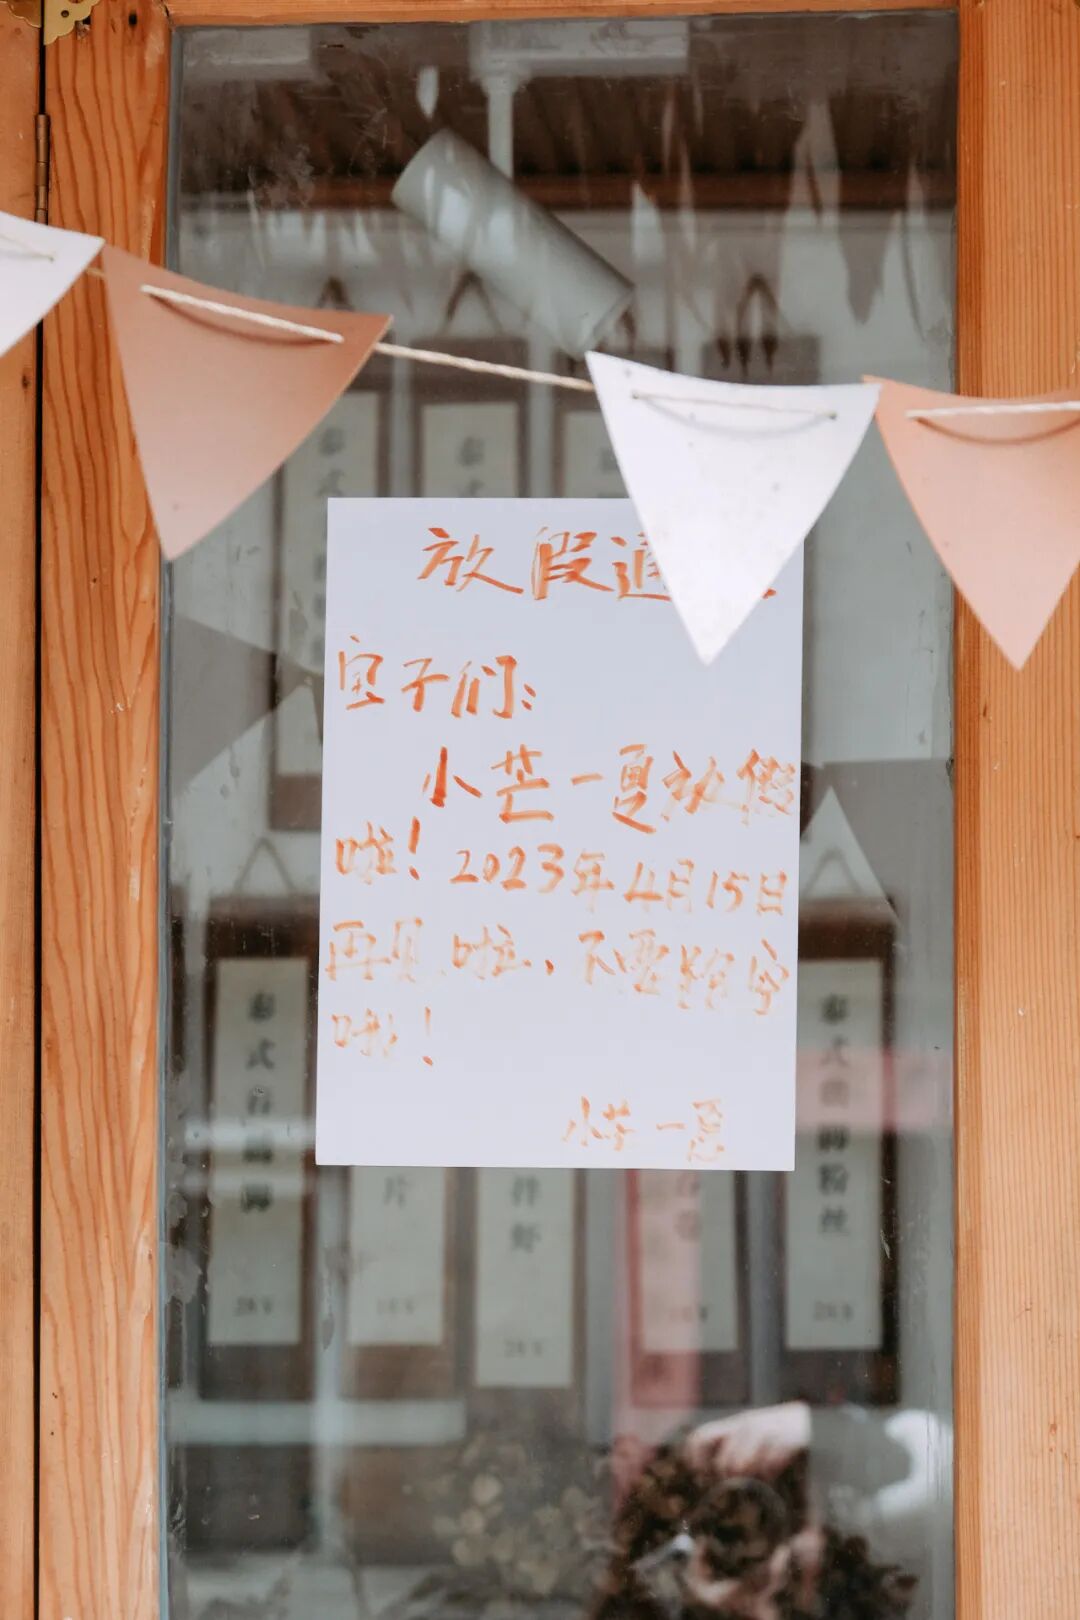 放假通
宝子们：
小芒一夏放假
啦！2023年4月15日
再见啦、不要跑空
哦！
小芒一夏
泰式
泰式
片
拌虾
泰式
粉丝